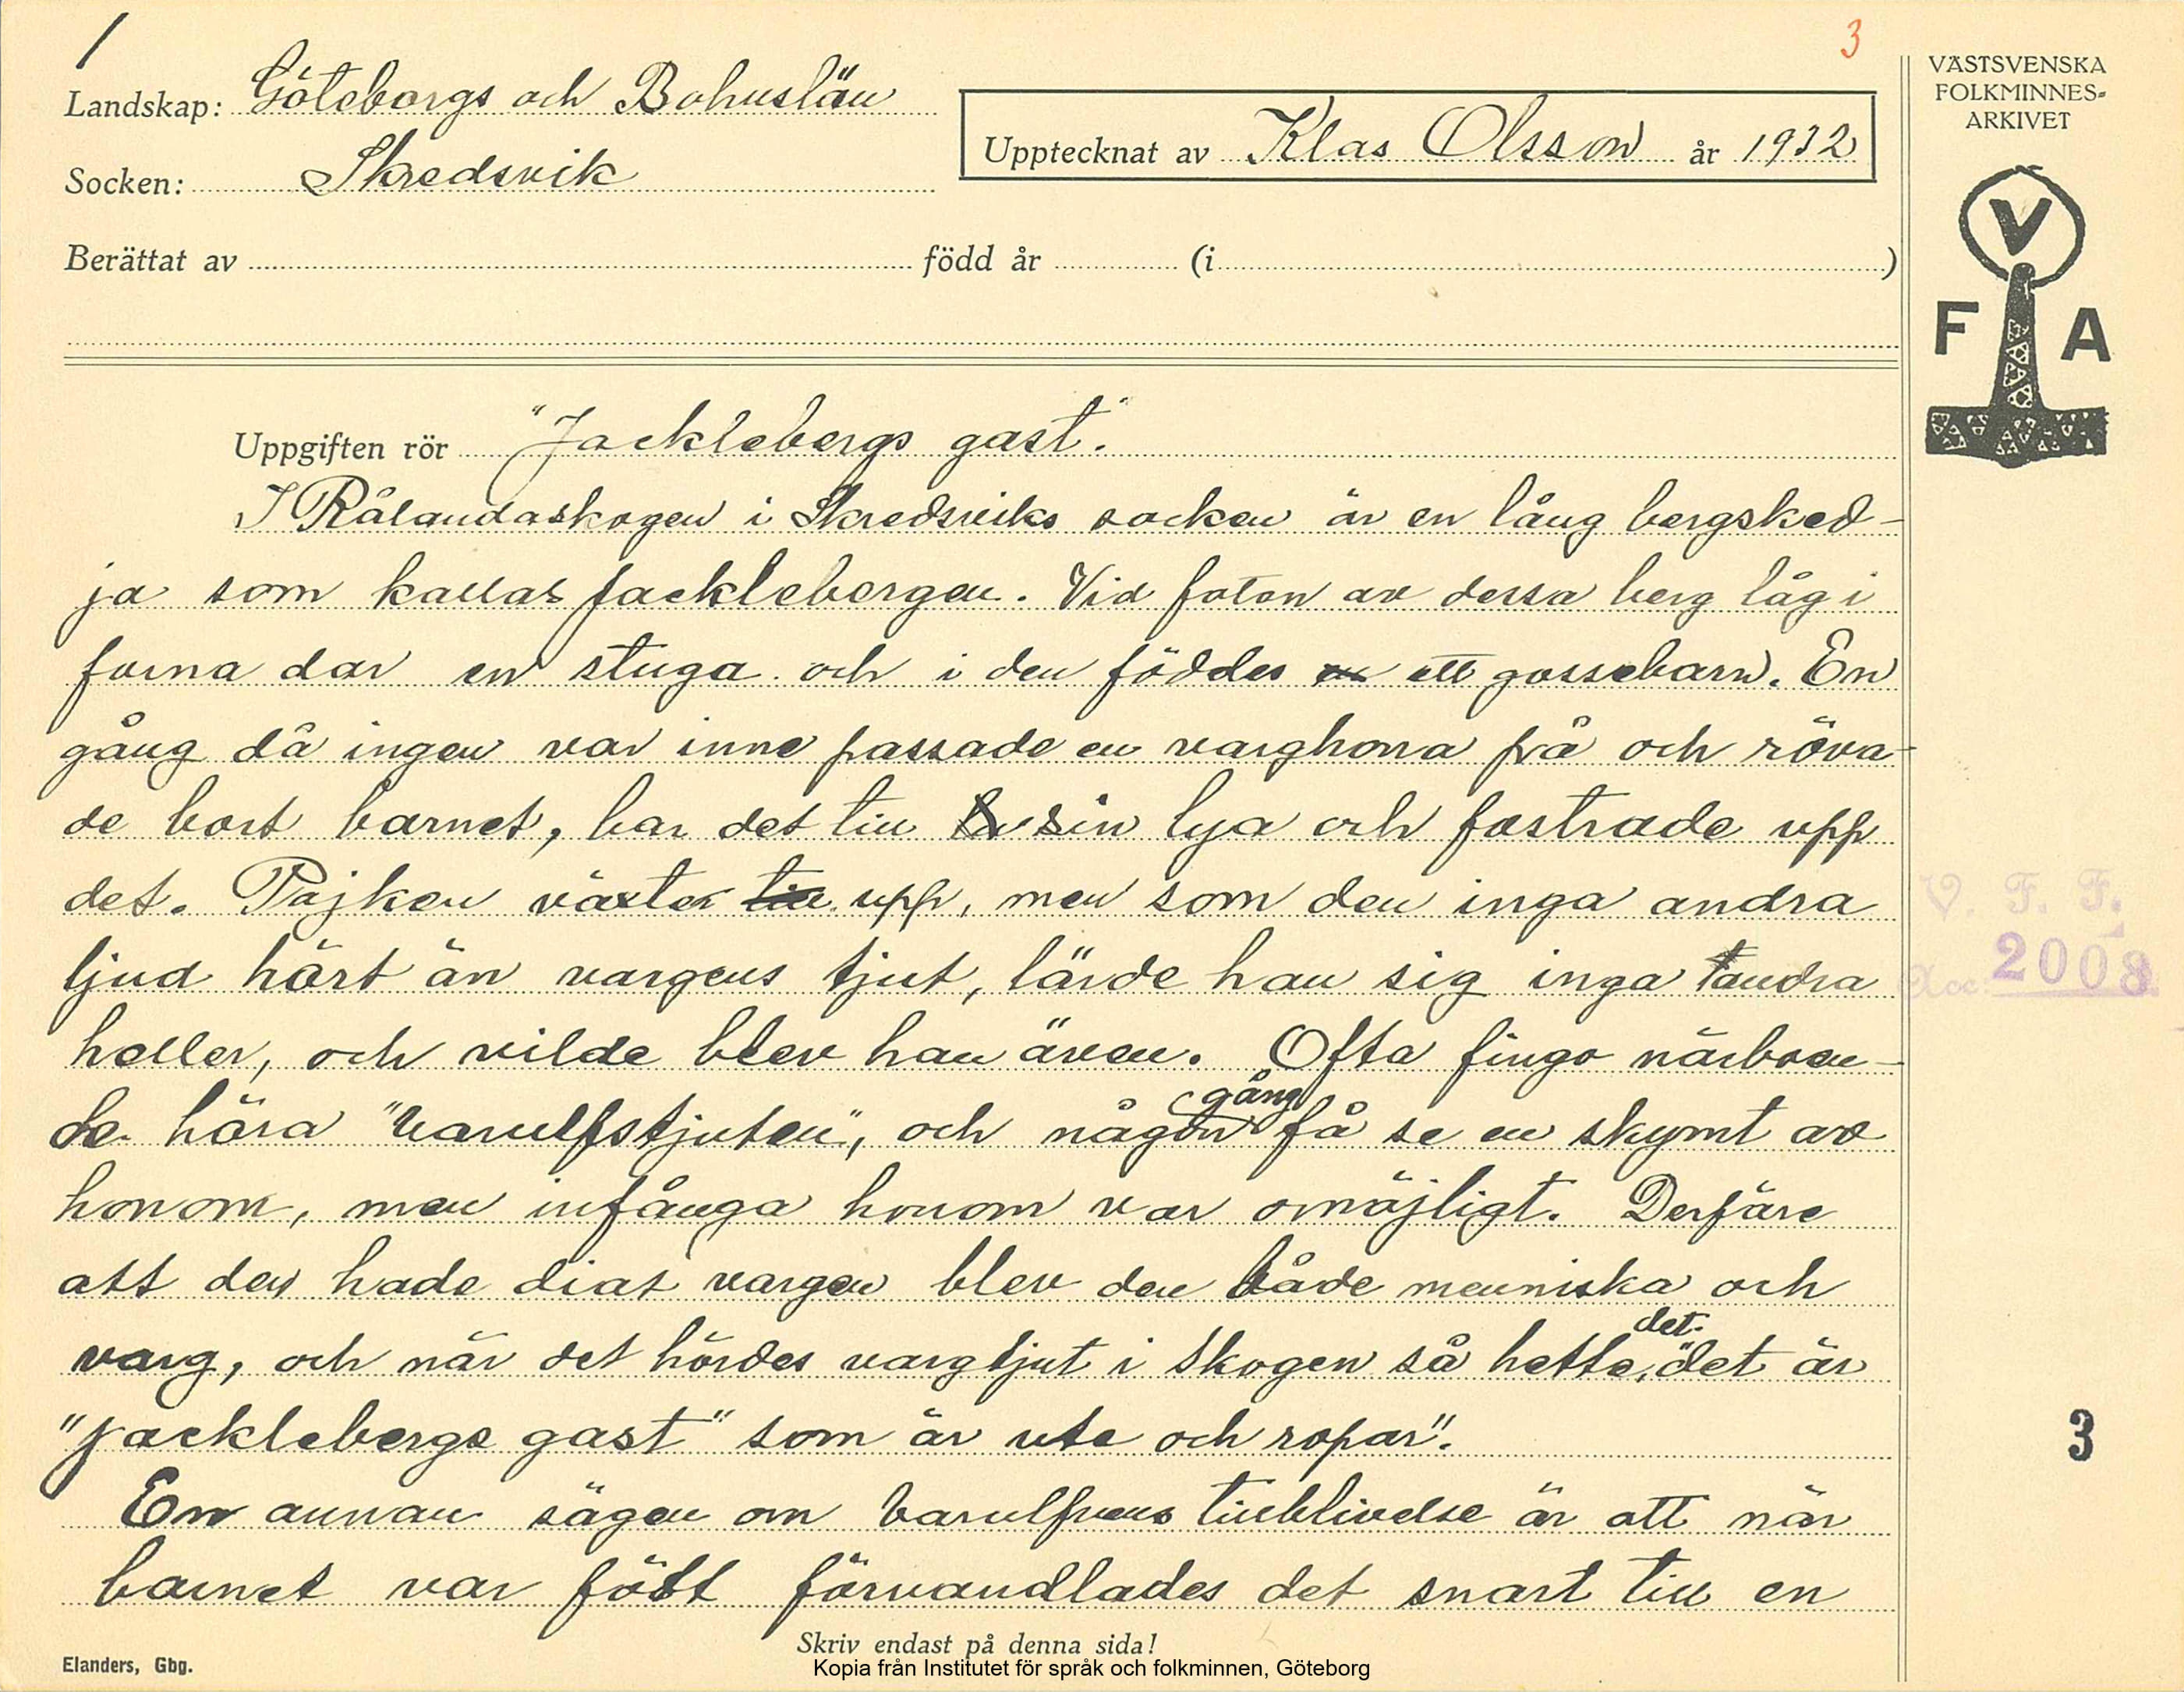 1
3
Landskap: Göteborgs och Bohuslän
Socken: Skredsvik
Upptecknat av Klas Olsson år 1932
Berättat av född år (i )
VÄSTSVENSKA
FOLKMINNES-
ARKIVET
V
F A
Uppgiften rör "Jacklebergs gast".
I Rålandaskogen i Skredsviks socken är en lång bergsked-
ja som kallas Jacklebergen. Vid foton av dessa berg låg i
forna dar en stuga och i den föddes ett gossebarn. En
gång då ingen var inne passade en varghona på och röva-
de bort barnet, bar det till sin lya och fostrade upp
det. Pojken växter upp, men som den inga andra
ljud hört än vargens tjut, lärde han sig inga andra
heller, och vilde blev han även. Ofta fingo närboen-
de höra "Varulfstjuten", och någon gång få se en skymt av
honom, men infånga honom var omöjligt. Derföre
att den hade diat vargen blev den både menniska och
varg, och när det hördes vargtjut i skogen så hette det. "det är
"Jacklebergs gast" som är ute och ropar".
En annan sägen om Varulfvens tillblivelse är att när
barnet var född förvandlades det snart till en
V. F. F.
Acc: 2008
3
Skriv endast på denna sida!
Elanders, Gbg.
Kopia från Institutet för språk och folkminnen, Göteborg